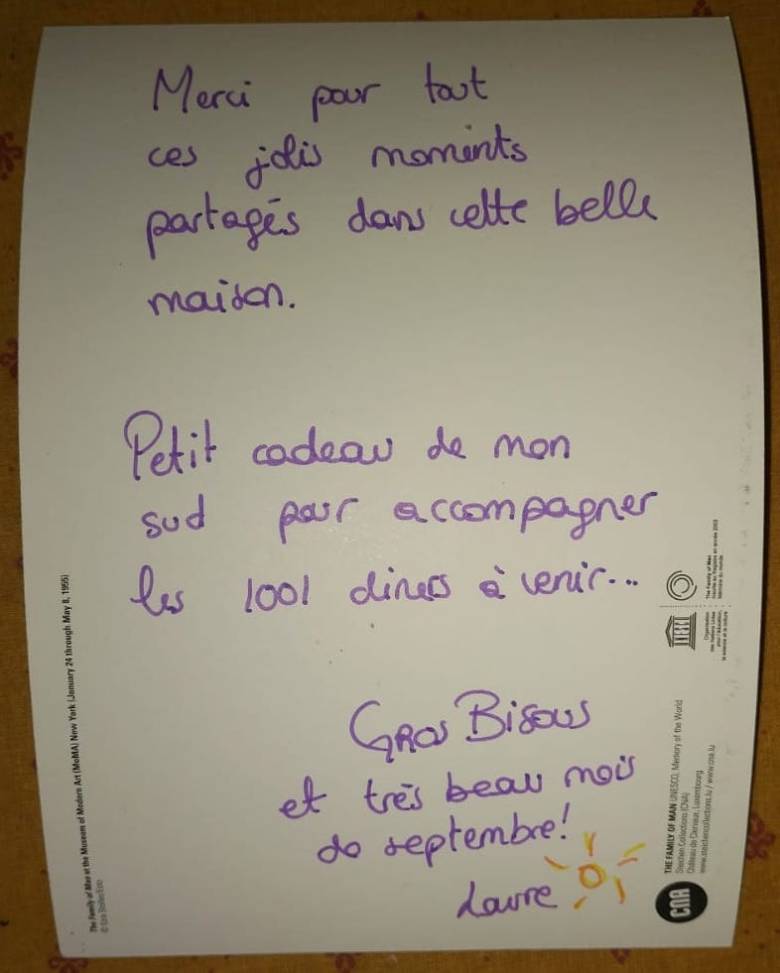 Merci pour tout
ces jolis moments
partagés dans cette belle
maison.
Petit cadeau de mon
sud pour accompagner
les 1001 diners à venir...
Gros Bisous
et très beau mois
de septembre!
Laure
The Family of Man at the Museum of Modern Art (MoMA) New York (January 24 through May 8, 1955)
THE FAMILY OF MAN UNESCO, Memory of the World
Steichen Collections (CNA)
Château de Clervaux, Luxembourg
www.steichencollections.lu / www.cna.lu
CNA
The Family of Man
Organisation
des Nations Unies
pour l'éducation,
la science et la culture
Mémoire du monde